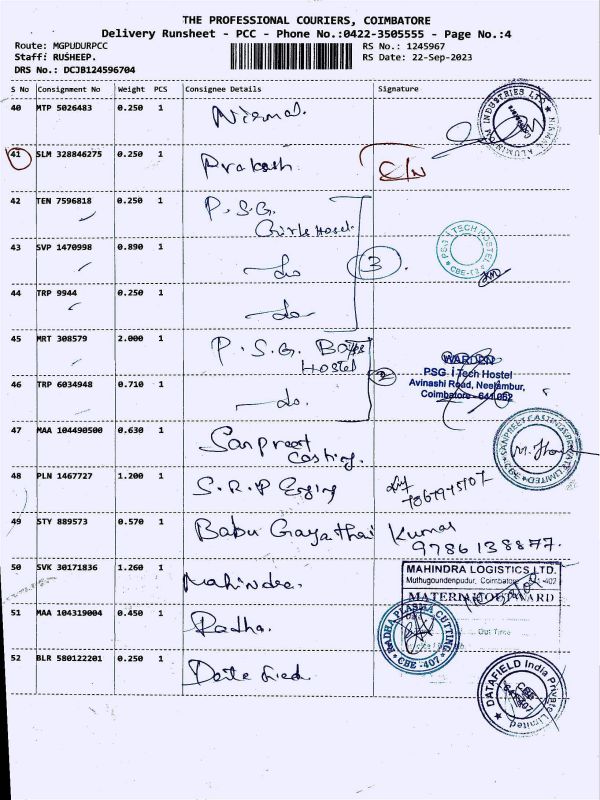 THE PROFESSIONAL COURIERS, COIMBATORE
Delivery Runsheet - PCC - Phone No.:0422-3505555 - Page No.:4
Route: MGPUDURPCC
RS No.: 1245967
Staff: RUSHEEP.
RS Date: 22-Sep-2023
DRS No.: DCJB124596704
S No Consignment No Weight PCS Consignee Details Signature
40 MTP 5026483 0.250 1 Nirmal.
41 SLM 328846275 0.250 1 Prakash C/N
42 TEN 7596818 0.250 1 P.S.G.
Girls Hostel.
43 SVP 1470998 0.890 1 -do 3
PSG i TECH HOSTEL
44 TRP 9944 0.250 1 -do-
45 MRT 308579 2.000 1 P.S.G. Boys
Hostel
WARDEN
PSG iTech Hostel
Avinashi Road, Neelambur,
Coimbatore - 641 062
46 TRP 6034948 0.710 1 -do. 2
47 MAA 104490500 0.630 1 Sanpreet
Casting.
SANPREET CASTINGS PRIVATE LIMITED
48 PLN 1467727 1.200 1 S.R.P
49 STY 889573 0.570 1 Babu Gayathai Kumar
9786138877.
50 SVK 30171836 1.260 1 Mahindra.
MAHINDRA LOGISTICS LTD.
Muthugoundenpudur, Coimbatore
MATERIAL OUTWARD
Out Time
51 MAA 104319004 0.450 1 Radha.
RADHA PLASMA CUTTING
CBE -407
52 BLR 580122201 0.250 1 Datafield
DATAFIELD India Private Limited